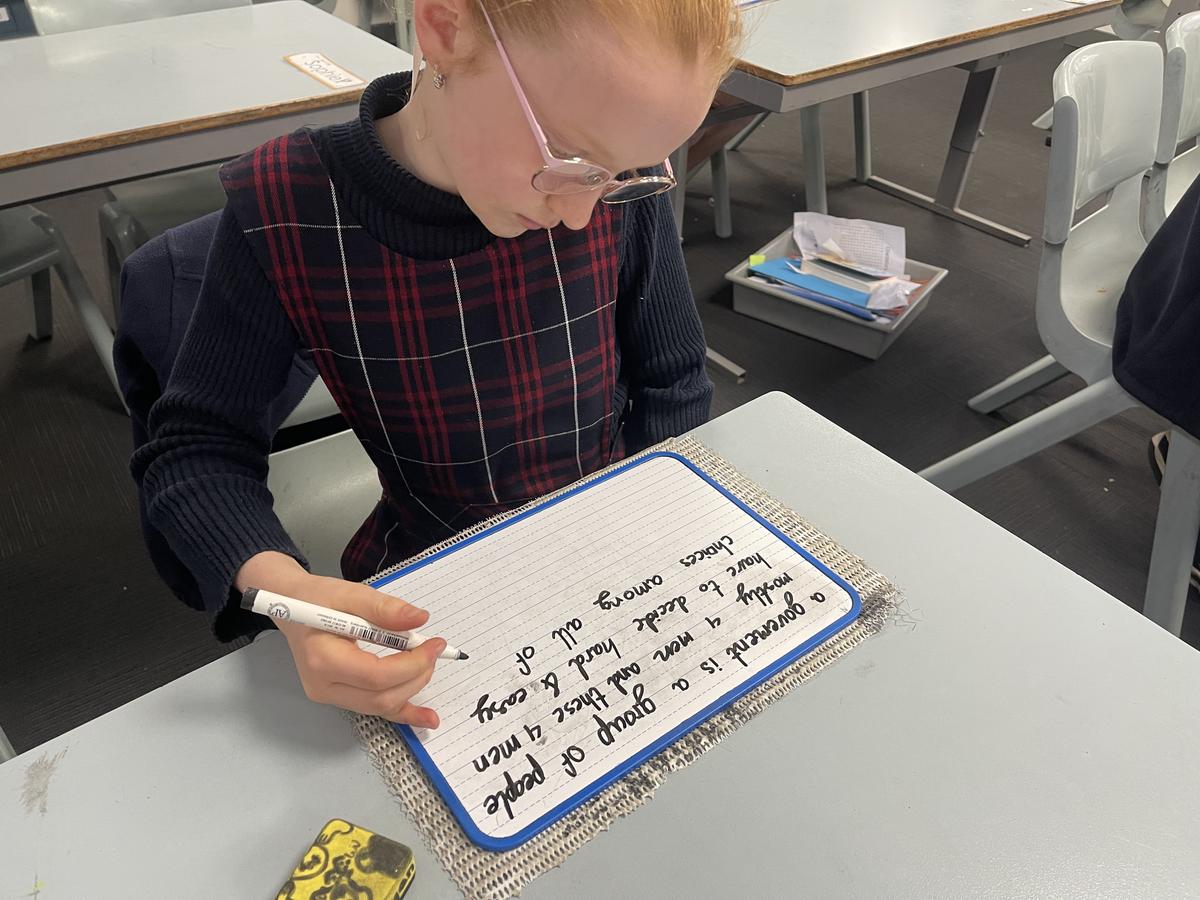 Sophie
a govement is a group of people
mostly 4 men and these 4 men
have to decide hard & easy
choices among all of